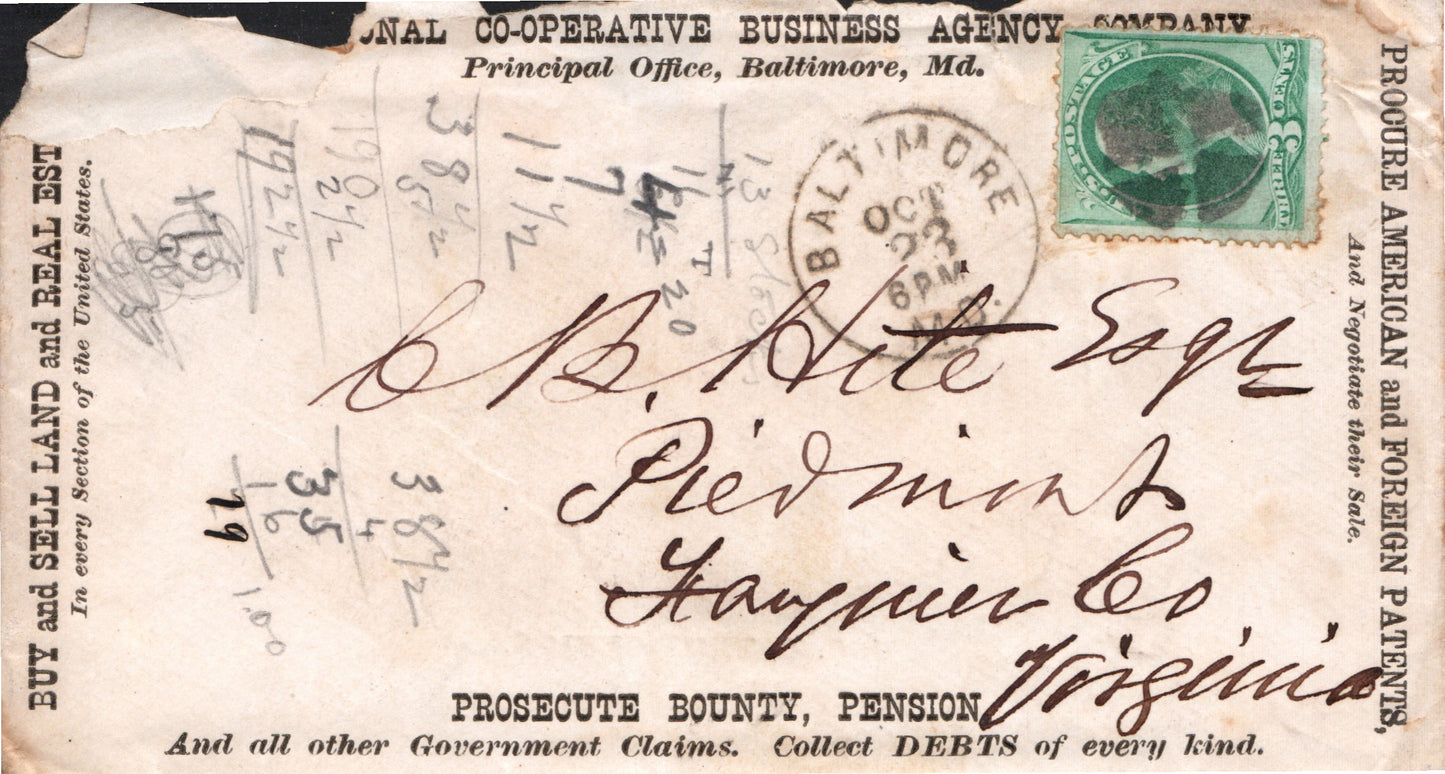 ONAL CO-OPERATIVE BUSINESS AGENCY COMPANY
Principal Office, Baltimore, Md.
BUY and SELL LAND and REAL EST
In every Section of the United States.
PROCURE AMERICAN and FOREIGN PATENTS,
And Negotiate their Sale.
POSTAGE
3
BALTIMORE
OCT
23
6PM
MD.
C B. Hite Esqr
Piedmont
Fauquier Co
Virginia
13
20
7
11 1/2
38 1/2
190 1/2
2 1/2
192 1/2
38 1/2
4
35
16
1.00
19
PROSECUTE BOUNTY, PENSION
And all other Government Claims. Collect DEBTS of every kind.